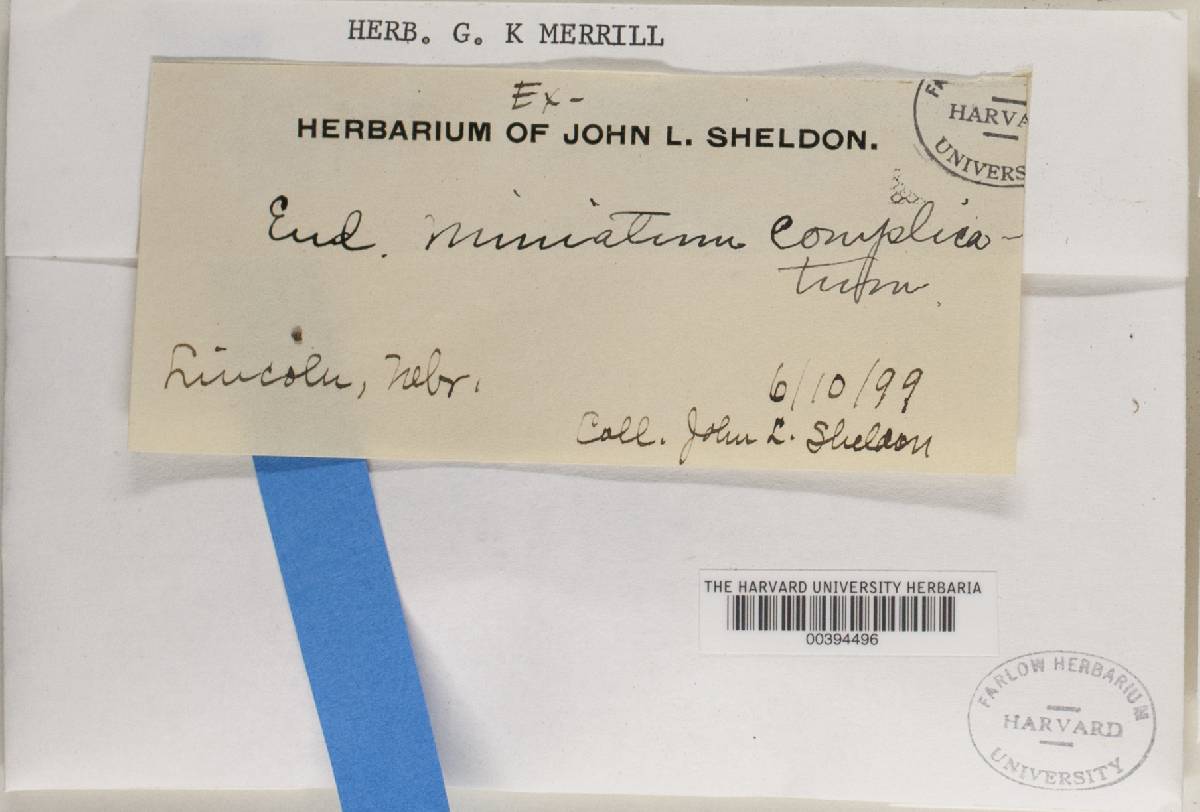 HERB. G. K MERRILL
Ex-
HERBARIUM OF JOHN L. SHELDON.
HARVA
UNIVERS
End. miniatum complica-
tum.
Lincoln, Nebr.
6/10/99
Coll. John L. Sheldon
THE HARVARD UNIVERSITY HERBARIA
00394496
FARLOW HERBARIUM
HARVARD
UNIVERSITY